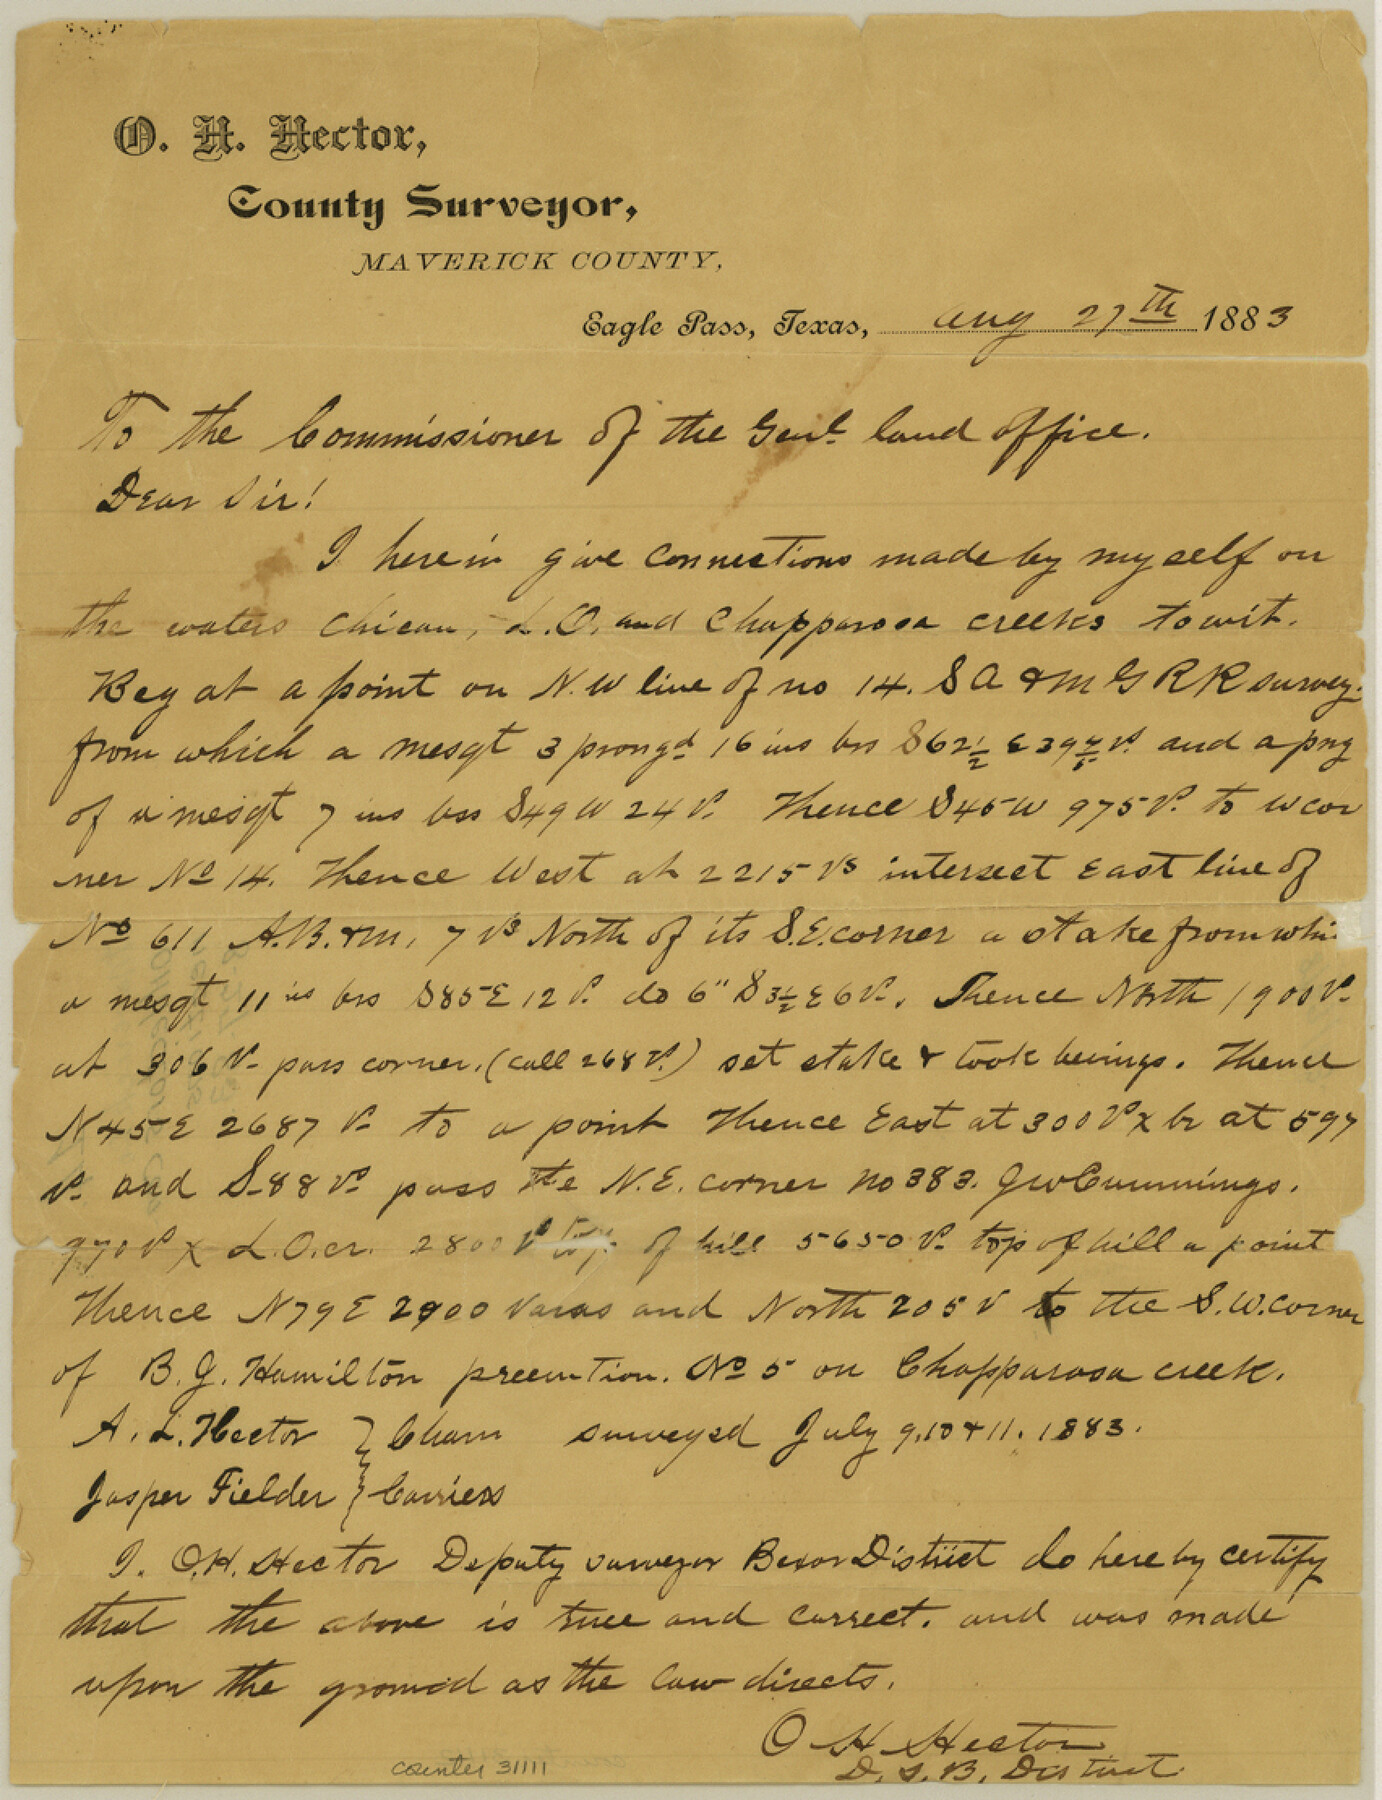 O. H. Hector,
County Surveyor,
MAVERICK COUNTY,
Eagle Pass, Texas, Aug 27th 1883
To the Commissioner of the Genl. land office.
Dear Sir!
I herein give connections made by myself on
the waters Chican, L.O. and Chapparosa creeks towit.
Beg at a point on N.W line of no 14. S A & M G R R survey.
from which a mesqt 3 prongd 16 ins brs S62½ E 39 vs. and a png
of a mesqt 7 ins brs S49W 24 vs. Thence S45W 975 vs. to W cor
ner No 14. Thence West at 2215 vs intersect East line of
No 611 A.B.&M. 7 vs North of its S.E. corner a stake from whi
a mesqt 11 ins brs S85E 12 vs. do 6" S3½ E 6 vs. Thence North 1900 vs.
at 306 vs. pass corner. (call 268 vs.) set stake & took berings. Thence
N45E 2687 vs. to a point Thence East at 300 vs x br at 597
vs. and S-88 vs. pass the N.E. corner no 383. Gw Cummings.
970 vs x L.O. cr. 2800 vs top of hill 5650 vs. top of hill a point
Thence N79E 2900 varas and North 205 v to the S.W. corner
of B.G. Hamilton preemtion. No 5 on Chapparosa creek.
A. L. Hector } Chain surveyed July 9, 10 & 11. 1883.
Jasper Fielder } Carriers
I. O.H. Hector Deputy surveyor Bexar District do hereby certify
that the above is true and correct. and was made
upon the ground as the law directs.
O H Hector
D. S. B. District
counter 31111